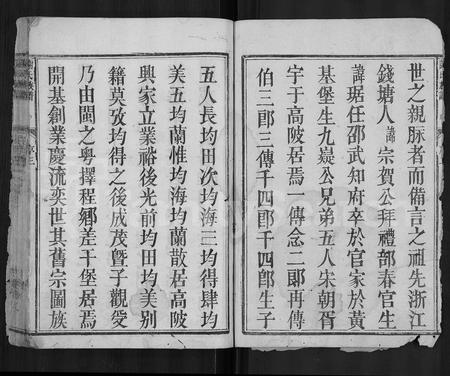 世之親脉者而備言之祖先浙江
錢塘人諱宗賀公拜禮部春官生
諱琚任邵武知府卒於官家於黃
基堡生九嶷公兄弟五人宋朝胥
宇于高陂居焉一傳念二郎再傳
伯三郎三傳千四郎千四郎生子
五人長均田次均海三均得肆均
美五均蘭惟均海均蘭散居高陂
興家立業裕後光前均田均美別
籍莫攷均得之後成茂暨子觀愛
乃由閩之粵擇程鄉差干堡居焉
開基創業慶流奕世其舊宗圖族